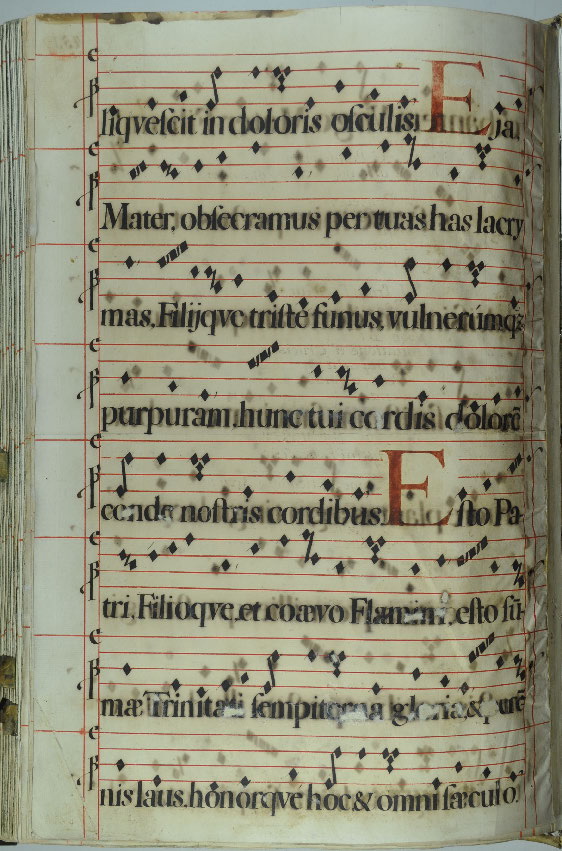 liqveſcit in doloris oſculis. E ja
Mater, obſecramus per tuas has lacry
mas, Filijqve triſte funus, vulnerúmq;
purpuram, hunc tui cordis dolorē
conde noſtris cordibus. E ſto Pa
tri, Filioqve, et coævo Flamini, eſto ſū
mæ Trinitati ſempiterna gloria, &
nis laus, honorqve hoc & omni ſæculo.